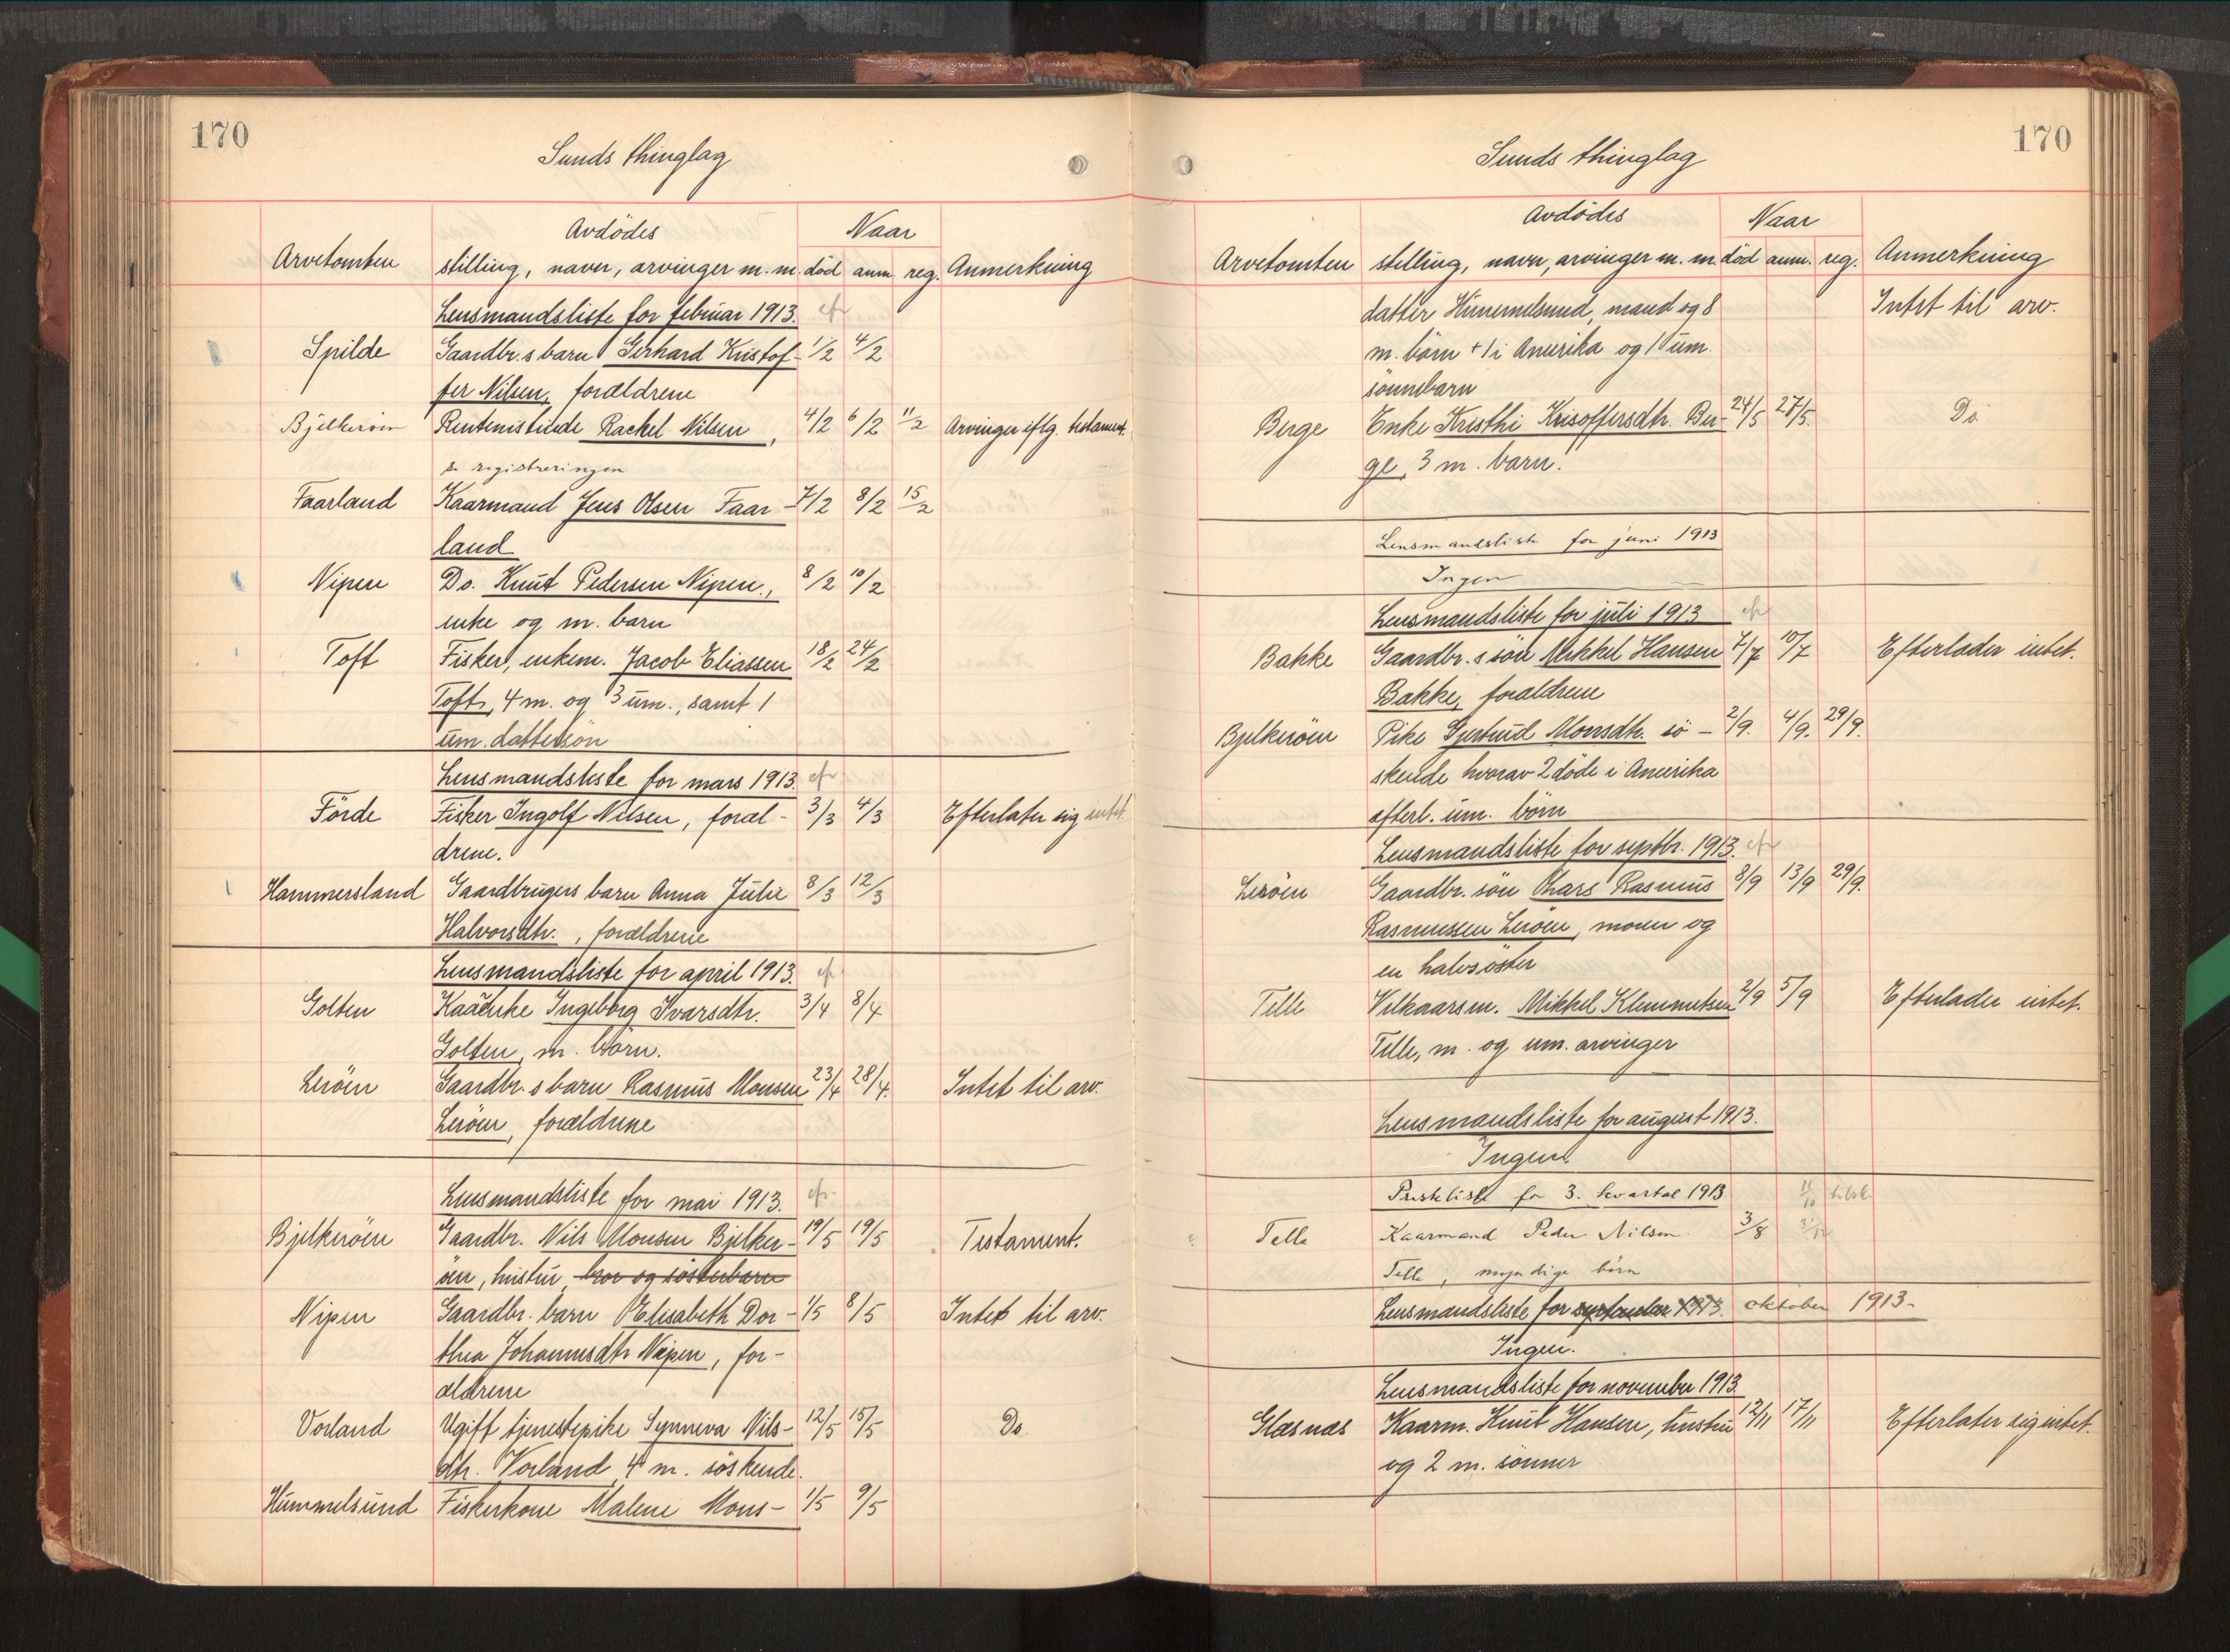 170
Sunds thinglag
Avdödes
Naar
Arvetomten stilling, navn, arvinger m. m. död anm. reg. Anmerkning
Lensmandsliste for februar 1913. cfr
Spilde Gaardbr.s barn Gerhard Kristof- 1/2 4/2
fer Nilsen, forældrene
Bjelkeröen Rentenistinde Rachel Nilsen, 4/2 6/2 11/2 Arvinger iflg. testament.
se registreringen
Faarland Kaarmand Jens Olsen Faar- 7/2 8/2 15/2
land
Nipen Do. Knut Pedersen Nipen., 8/2 10/2
enke og m. barn
Toft Fisker, enkem. Jacob Eliassen 18/2 24/2
Toft, 4 m. og 3 um., samt 1
um. dattersön
Lensmandsliste for mars 1913. cfr
Förde Fisker Ingolf Nilsen, foræl- 3/3 4/3 Efterlater sig intet
drene.
Hammersland Gaardbrugers barn Anna Julie 8/3 12/3
Halvorsdtr., forældrene
Lensmandsliste for april 1913. cfr
Golten Kaarenke Ingeborg Ivarsdtr. 3/4 8/4
Golten, m. börn.
Leröen Gaardbr.s barn Rasmus Monsen 23/4 28/4. Intet til arv.
Leröen, forældrene
Lensmandsliste for mai 1913. cfr.
Bjelkeröen Gaardbr. Nils Monsen Bjelker- 19/5 19/5 Testament.
öen, hustru, bror og sösterbarn
Nipen Gaardbr. barn Elisabeth Dor- 1/5 8/5 Intet til arv.
thea Johannesdtr Nipen, for-
ældrene
Vorland Ugift tjenestepike Synneva Nils- 12/5 15/5 Do
dtr. Vorland, 4 m. söskende.
Hummelsund Fiskerkone Malene Mons- 1/5 9/5
170
Sunds thinglag
Avdödes
Naar
Arvetomten stilling, navn, arvinger m. m. död anm. reg. Anmerkning
datter Hummelsund, mand og 8 Intet til arv.
m. börn + 1 i Amerika og 1 um.
sönnebarn
Berge Enke Kristhi Krisoffersdtr. Ber- 24/5 27/5. Do
ge, 3 m. barn.
Lensmandsliste for juni 1913
Ingen
Lensmandsliste for juli 1913 cfr
Bakke Gaardbr.s sön Mikkel Hansen 7/7 10/7 Efterlader intet.
Bakke, forældrene
Bjelkeröen Pike Gjertrud Monsdtr. sö- 2/9. 4/9. 29/9.
skende hvorav 2 döde i Amerika
efterl. um. börn
Lensmandsliste for septbr. 1913. cfr
Leröen Gaardbr. sön Lars Rasmus 8/9 13/9 29/9.
Rasmussen Leröen, moren og
en halvsöster
Telle Vilkaarsm. Mikkel Klemmetsen 2/9 5/9 Efterlader intet.
Telle, m. og um. arvinger
Lensmandsliste for august 1913.
Ingen.
Presteliste for 3. kvartal 1913 11/10
Telle Kaarmand Peder Nilsen 3/8
Telle, myndige börn
Lensmandsliste for september 1913. oktober 1913.
Ingen.
Lensmandsliste for november 1913
Glæsnæs Kaarm. Knut Hansen, hustru 12/11 17/11 Efterlater sig intet.
og 2 m. sönner